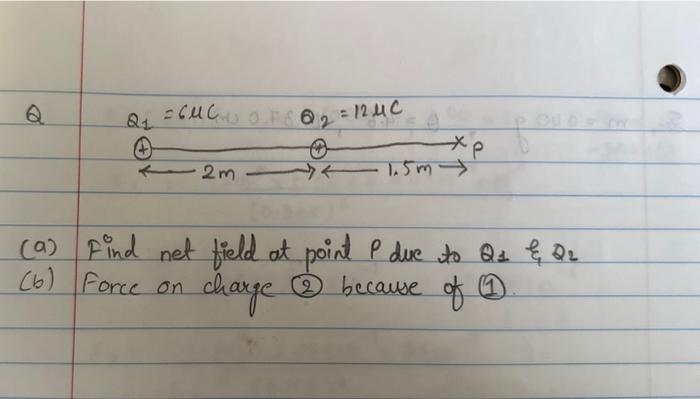 Q Q1 = 6μC Q2 = 12μC
+ + × P
2m 1.5m
(a) Find net field at point P due to Q1 & Q2
(b) Force on charge ② because of ①.